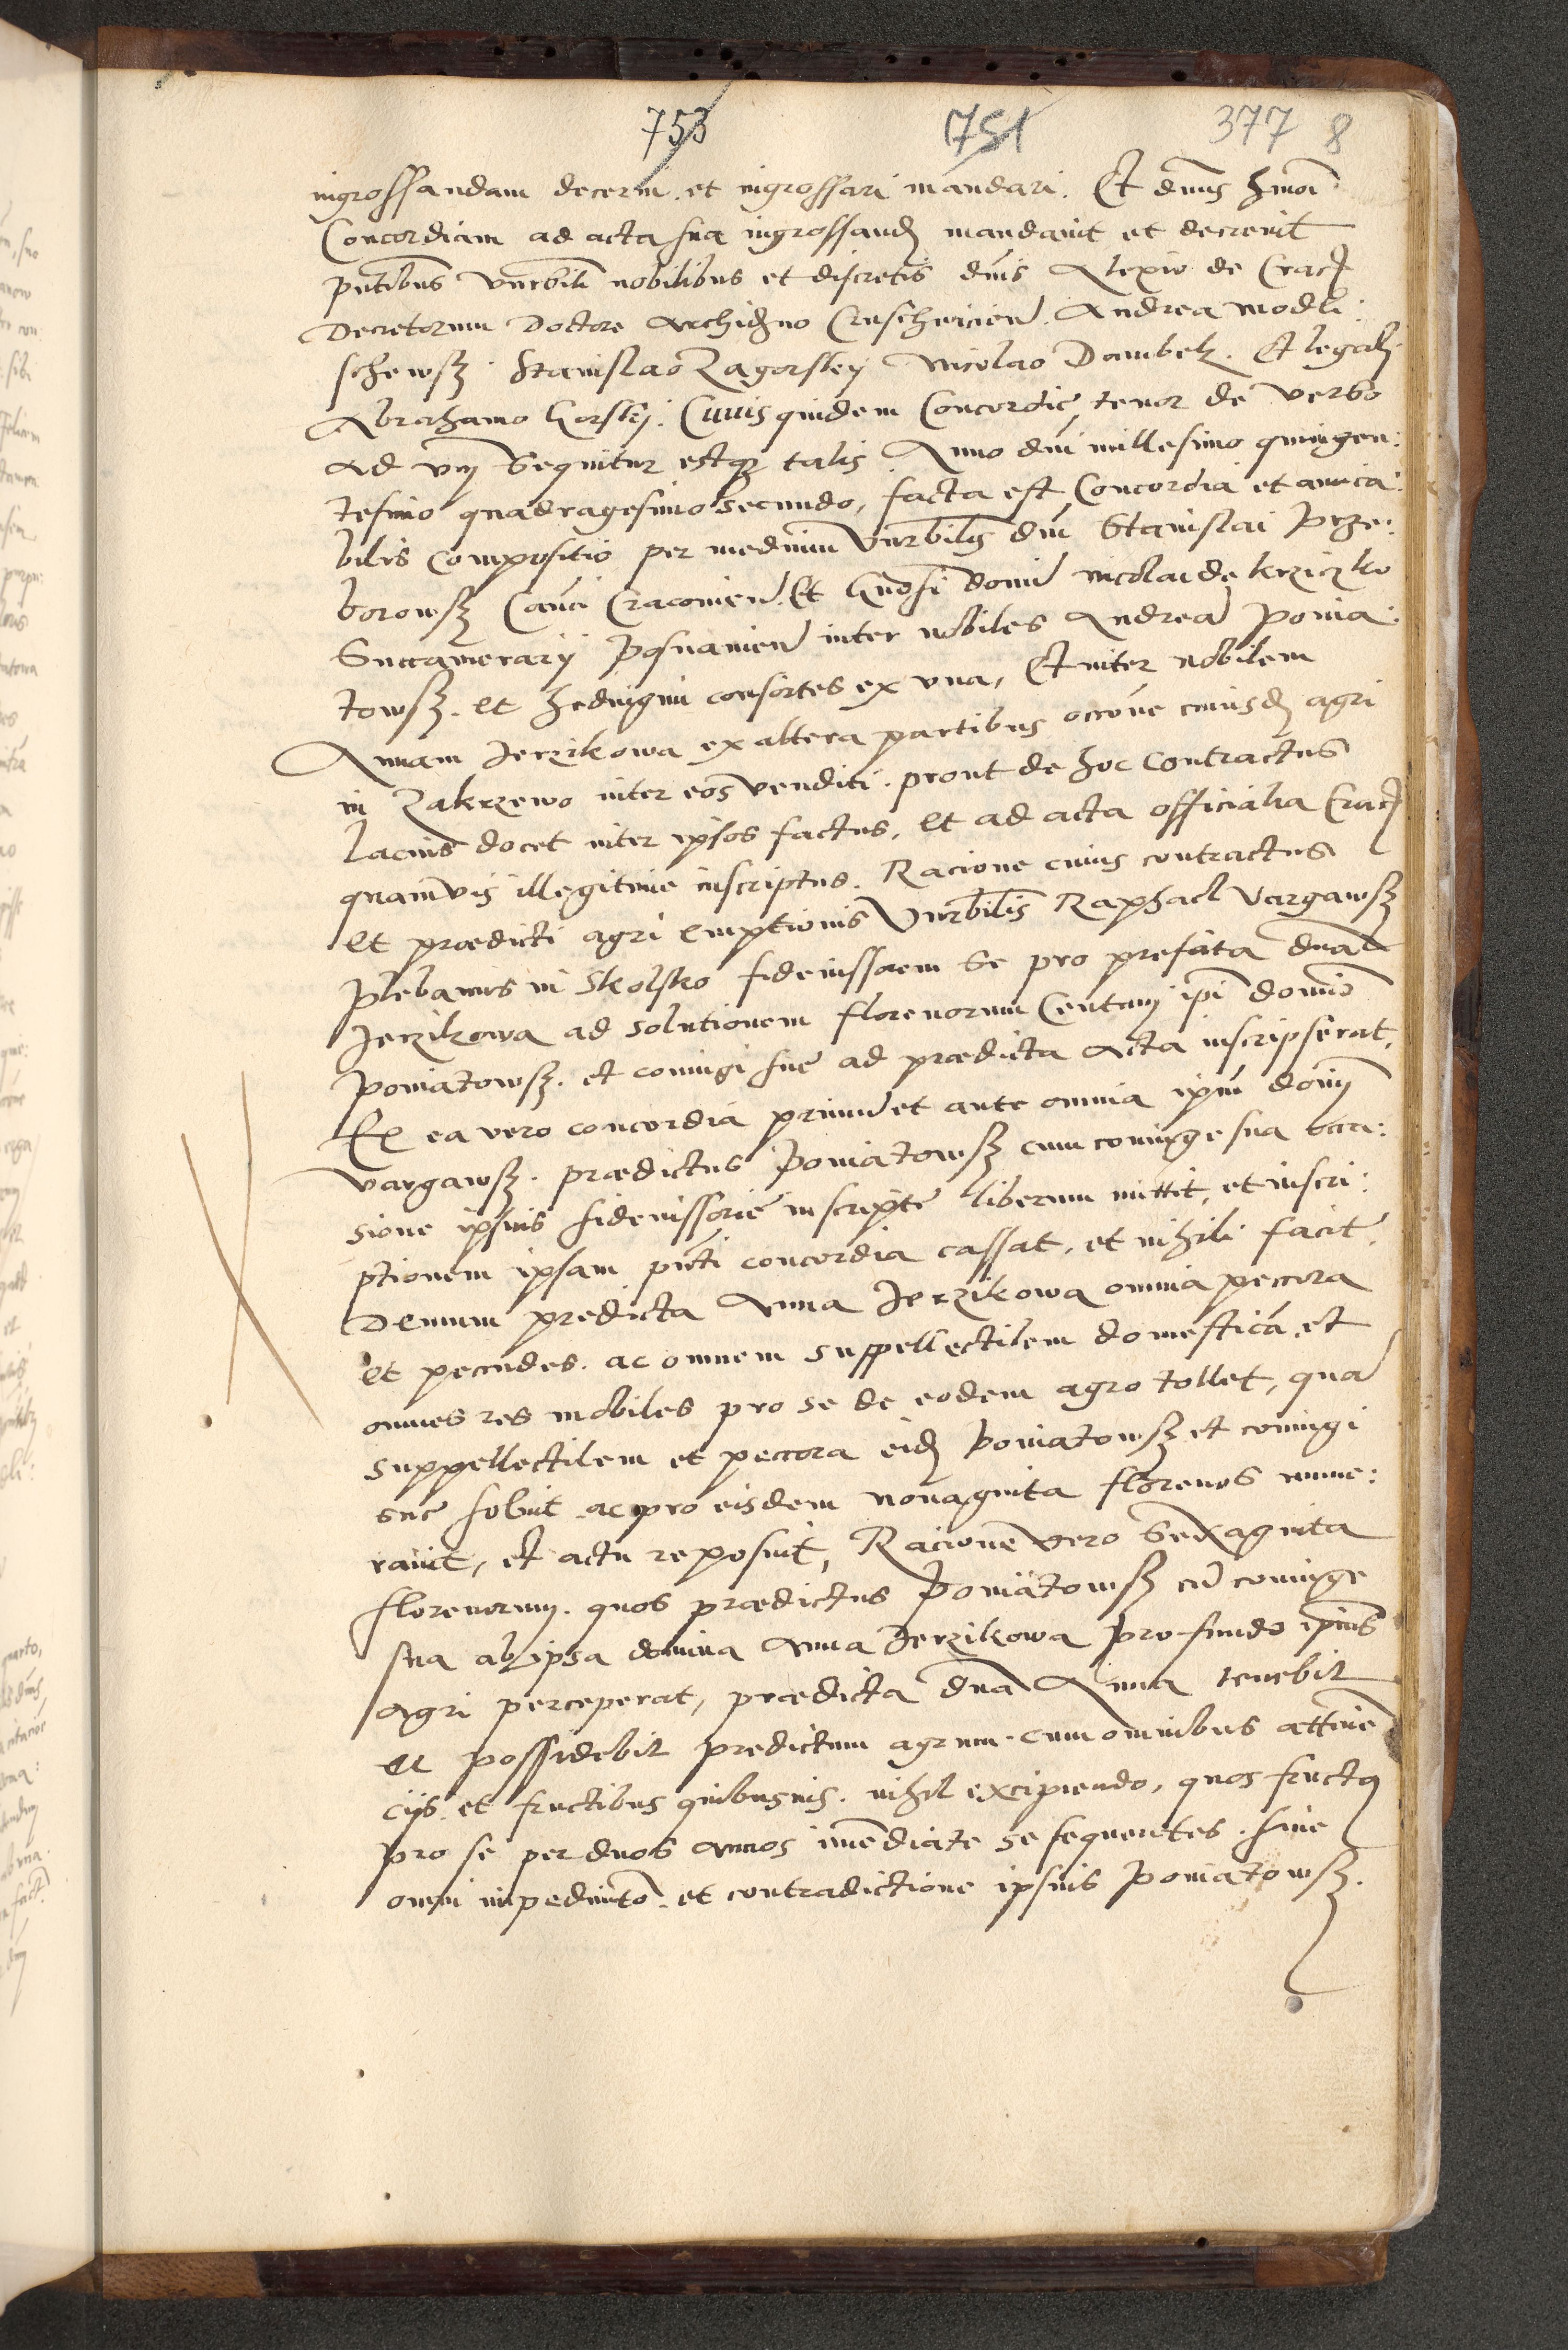 753 751 377 8
ingrossandam decerni. et ingrossari mandari. Et dnus hmoi
Concordiam ad acta sua ingrossand mandauit et decreuit
pntibus vnrbili nobilibus et discretis dnis Alexio de Crac
Decretorum Doctore Archidno Cruschwicien. Andrea modli:
schewsk. Stanislao Zagorskij Nicolao Dambek. Et legali
Abrahamo Gorskij. Cuius quidem Concordie tenor de verbo
ad vm Sequitur estqz talis. Anno dni millesimo quingen:
tesimo quadragesimo secundo, facta est Concordia et amica:
bilis Compositio per medium Vnrbilis dni Stanislai Prze:
borowsk Canci Cracouien. Et Gnosi domi nicolai de krziczko
Succamerarij Posnanien inter nobiles Andrea Ponia:
towsk. et hedwigim consortes ex vna, Et inter nobilem
Annam Jerzikowa ex altera partibus occoue cuiusd agri
in Zakrzewo inter eos venditi. prout de hoc Contractus
lacius docet inter ipsos factus, et ad acta officialia Crac
quamvis illegitime inscriptus. Racione cuius contractus
et prædicti agri emptionis Vnrbilis Raphael Vargawsk
Plebanus in Skolsko fideiussorem Se pro prefata dna
Jerzikowa ad solutionem florenorum Centum ipi domino
Poniatowsk. et coniugi sue ad prædicta Acta inscripserat.
Ex ea vero concordia primum et ante omnia ipm domi
vargawsk. prædictus Poniatowsk cum coniuge sua occa:
sione ipsius fideiussorie inscripte liberum mittit, et inscri:
ptionem ipsam pnti concordia cassat, et nihili facit.
Demum predicta Anna Jerzikowa omnia peccora
et pecudes. ac omnem suppellectilem domestica, et
omnes res mobiles pro se de eodem agro tollet, qua
suppellectilem et peccora eid Poniatowsk et coniugi
sue soluit. ac pro eisdem nonaginta florenos nume:
rauit, et actu reposuit, Racione vero Sexaginta
florenorum. quos prædictus Poniatowsk cu coniuge
sua ab ipsa domina Anna Jerzikowa pro fundo ipius
Agri perceperat, prædicta dna Anna tenebit
et possidebit predictum agrum. cum omnibus attine
cijs. et fructibus quibusuis. nihil excipiendo, quos fructus
pro se per duos annos imediate se sequentes. sine
omni impedimto. et contradictione ipsius Poniatowsk.